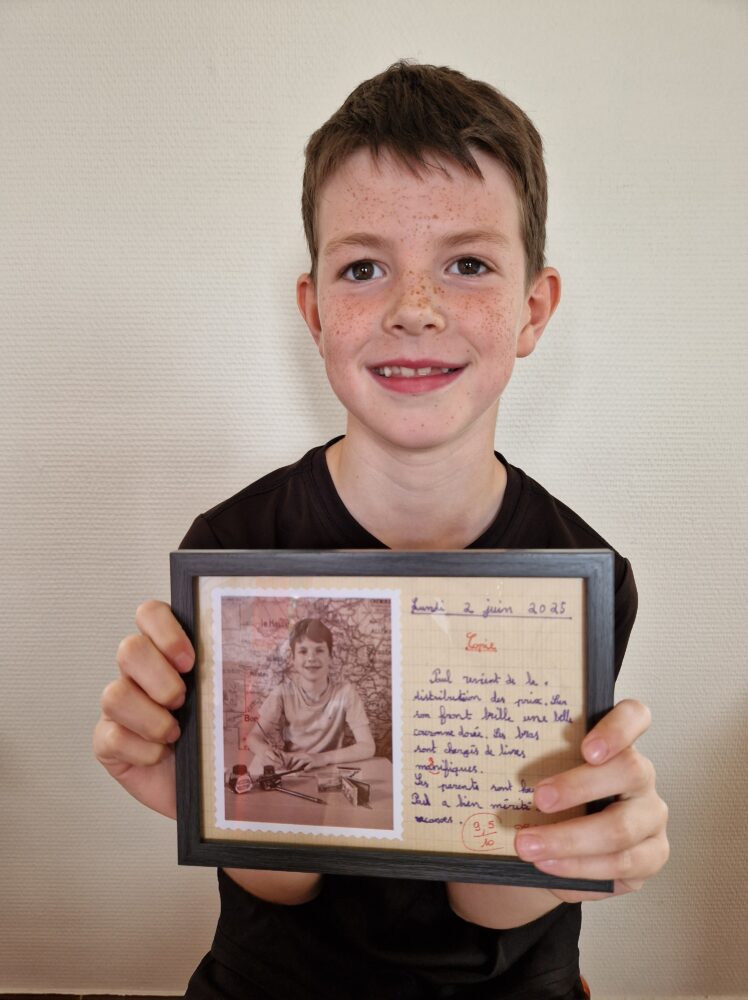 Lundi 2 juin 2025
Copie
Paul revient de la
distribution des prix. Sur
son front brille une belle
couronne dorée. Ses bras
sont chargés de livres
manifiques.
Ses parents sont
Paul a bien mérité
vacances.
9,5
10